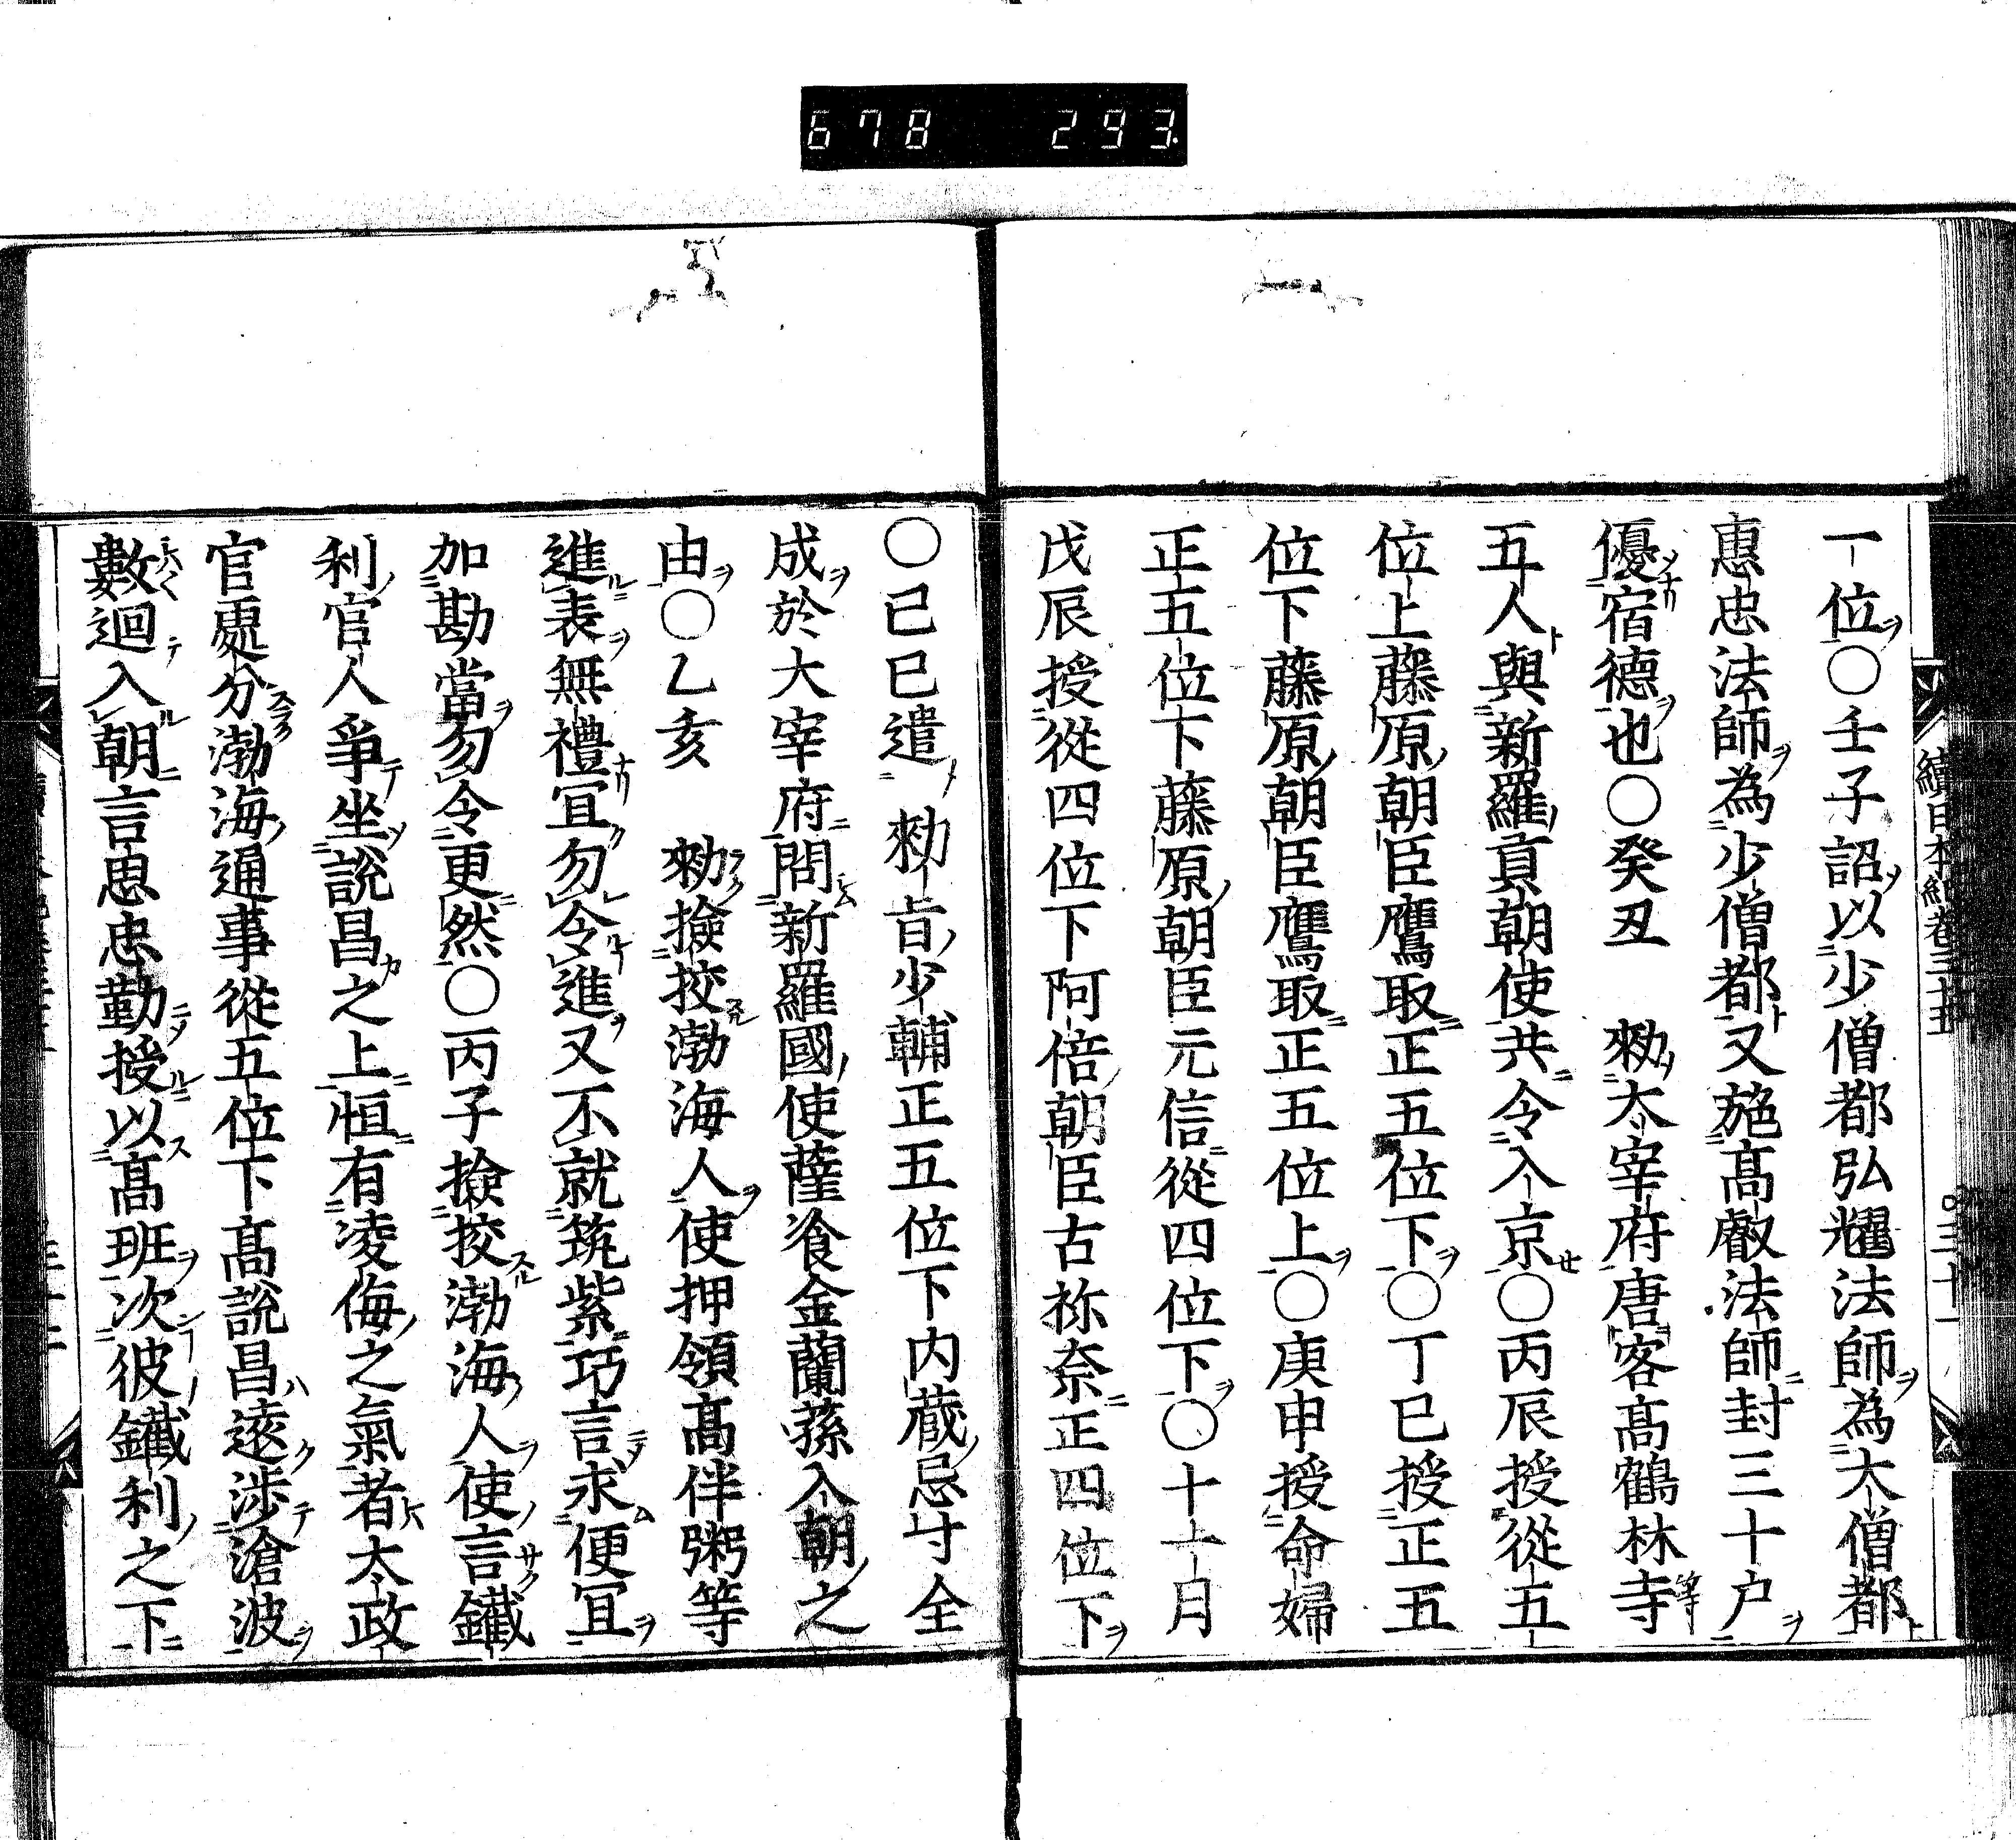 678 293
續日本紀巻三十五 三十一
一位○壬子詔以少僧都弘耀法師為大僧都
惠忠法師為少僧都又施高叡法師封三十户
優宿德也○癸丑 勑太宰府唐客高鶴林寺等
五人與新羅貢朝使共令入京○丙辰授從五
位上藤原朝臣鷹取正五位下○丁巳授正五
位下藤原朝臣鷹取正五位上○庚申授命婦
正五位下藤原朝臣元信從四位下○十一月
戊辰授從四位下阿倍朝臣古祢奈正四位下
○己巳遣 勑旨少輔正五位下内蔵忌寸全
成於大宰府問新羅國使薩飡金蘭蓀入朝之
由○乙亥 勑撿挍渤海人使押領高伴粥等
進表無禮冝勿令進又不就筑紫巧言求便冝
加勘當勿令更然○丙子撿挍渤海人使言鐵
利官人爭坐說昌之上恒有凌侮之氣者太政
官處分渤海通事從五位下高說昌遠涉滄波
數迴入朝言思忠勤授以高班次彼鐵利之下